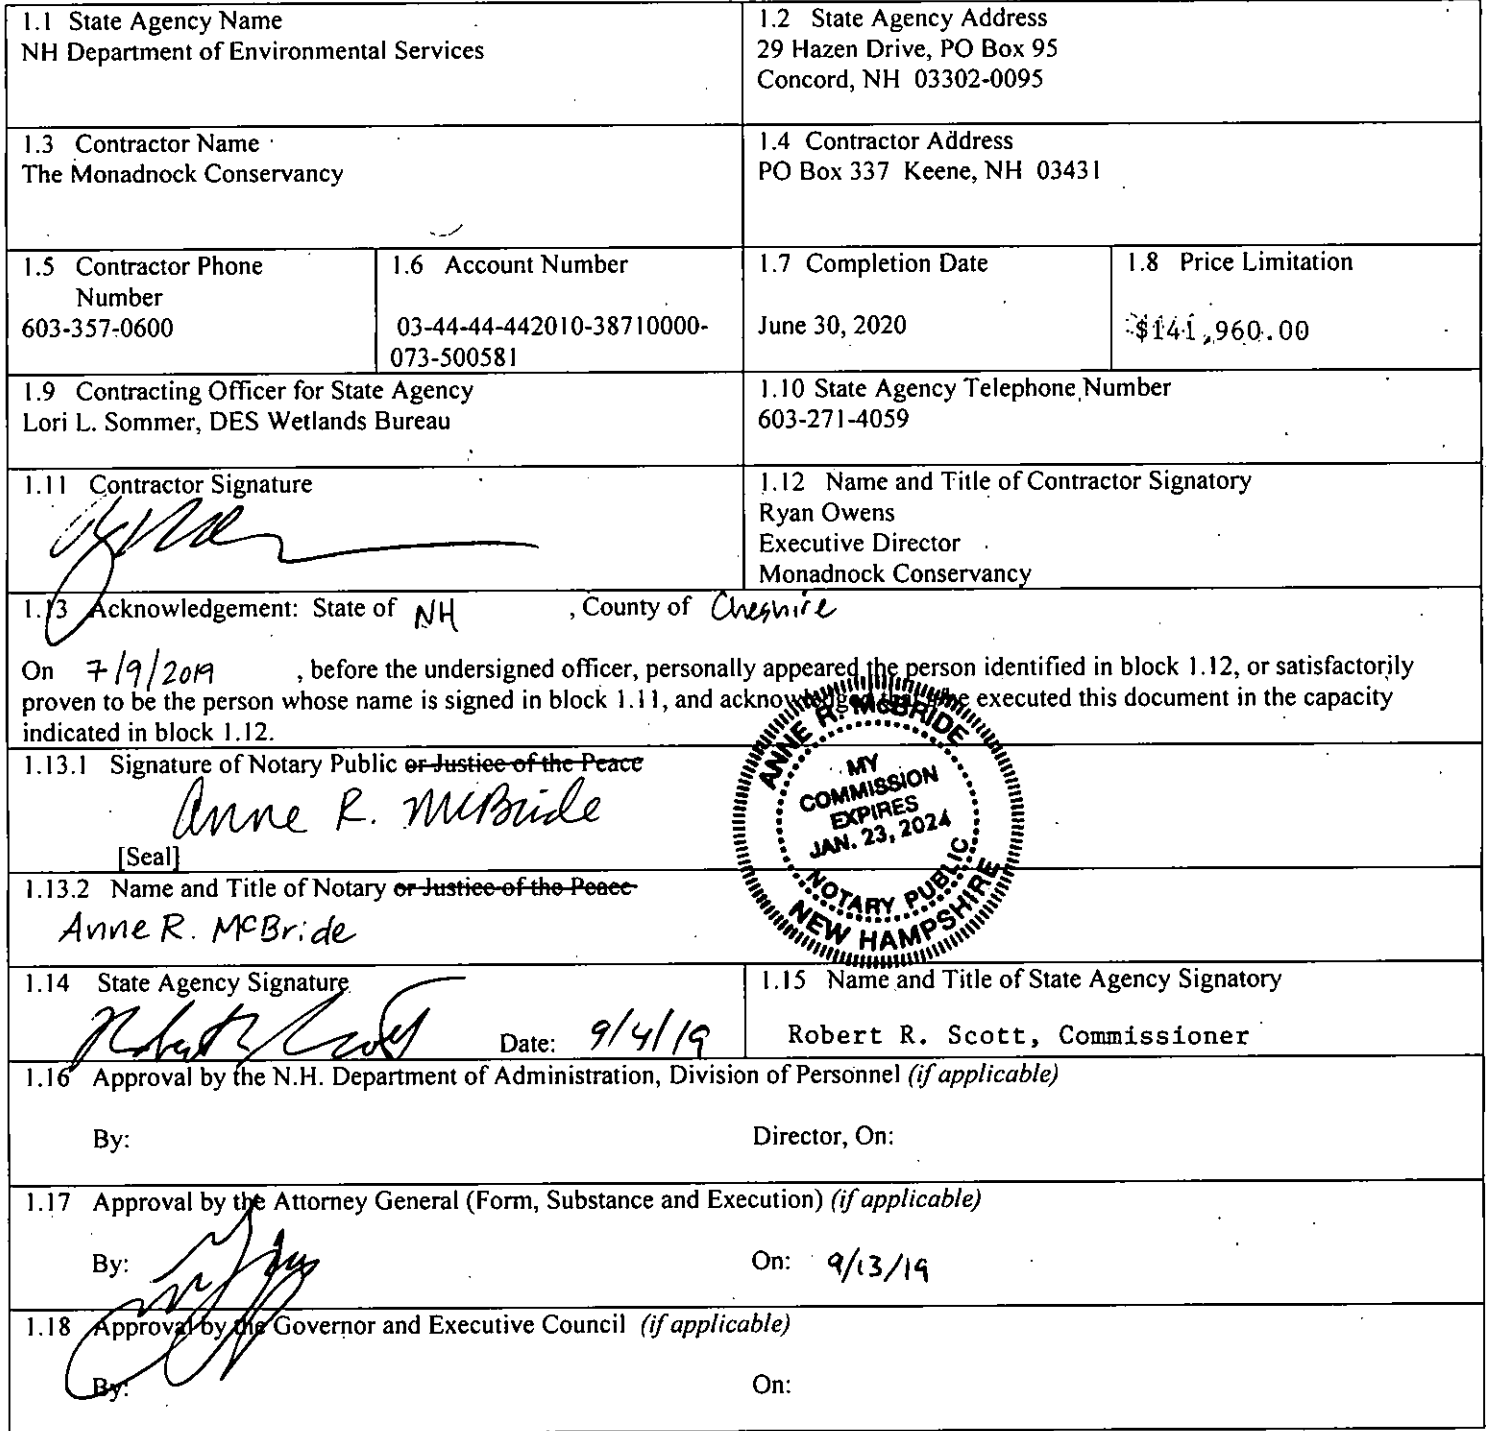 1.1 State Agency Name
NH Department of Environmental Services
1.2 State Agency Address
29 Hazen Drive, PO Box 95
Concord, NH 03302-0095
1.3 Contractor Name
The Monadnock Conservancy
1.4 Contractor Address
PO Box 337 Keene, NH 03431
1.5 Contractor Phone
Number
603-357-0600
1.6 Account Number
03-44-44-442010-38710000-
073-500581
1.7 Completion Date
June 30, 2020
1.8 Price Limitation
$141,960.00
1.9 Contracting Officer for State Agency
Lori L. Sommer, DES Wetlands Bureau
1.10 State Agency Telephone Number
603-271-4059
1.11 Contractor Signature
1.12 Name and Title of Contractor Signatory
Ryan Owens
Executive Director
Monadnock Conservancy
1.13 Acknowledgement: State of NH , County of Cheshire
On 7/9/2019 , before the undersigned officer, personally appeared the person identified in block 1.12, or satisfactorily
proven to be the person whose name is signed in block 1.11, and acknowledged that executed this document in the capacity
indicated in block 1.12.
1.13.1 Signature of Notary Public or Justice of the Peace
Anne R. McBride
[Seal]
ANNE R. McBRIDE
MY
COMMISSION
EXPIRES
JAN. 23, 2024
NOTARY PUBLIC
NEW HAMPSHIRE
1.13.2 Name and Title of Notary or Justice of the Peace
Anne R. McBride
1.14 State Agency Signature
Date: 9/4/19
1.15 Name and Title of State Agency Signatory
Robert R. Scott, Commissioner
1.16 Approval by the N.H. Department of Administration, Division of Personnel (if applicable)
By:
Director, On:
1.17 Approval by the Attorney General (Form, Substance and Execution) (if applicable)
By:
On: 9/13/19
1.18 Approval by the Governor and Executive Council (if applicable)
By:
On: